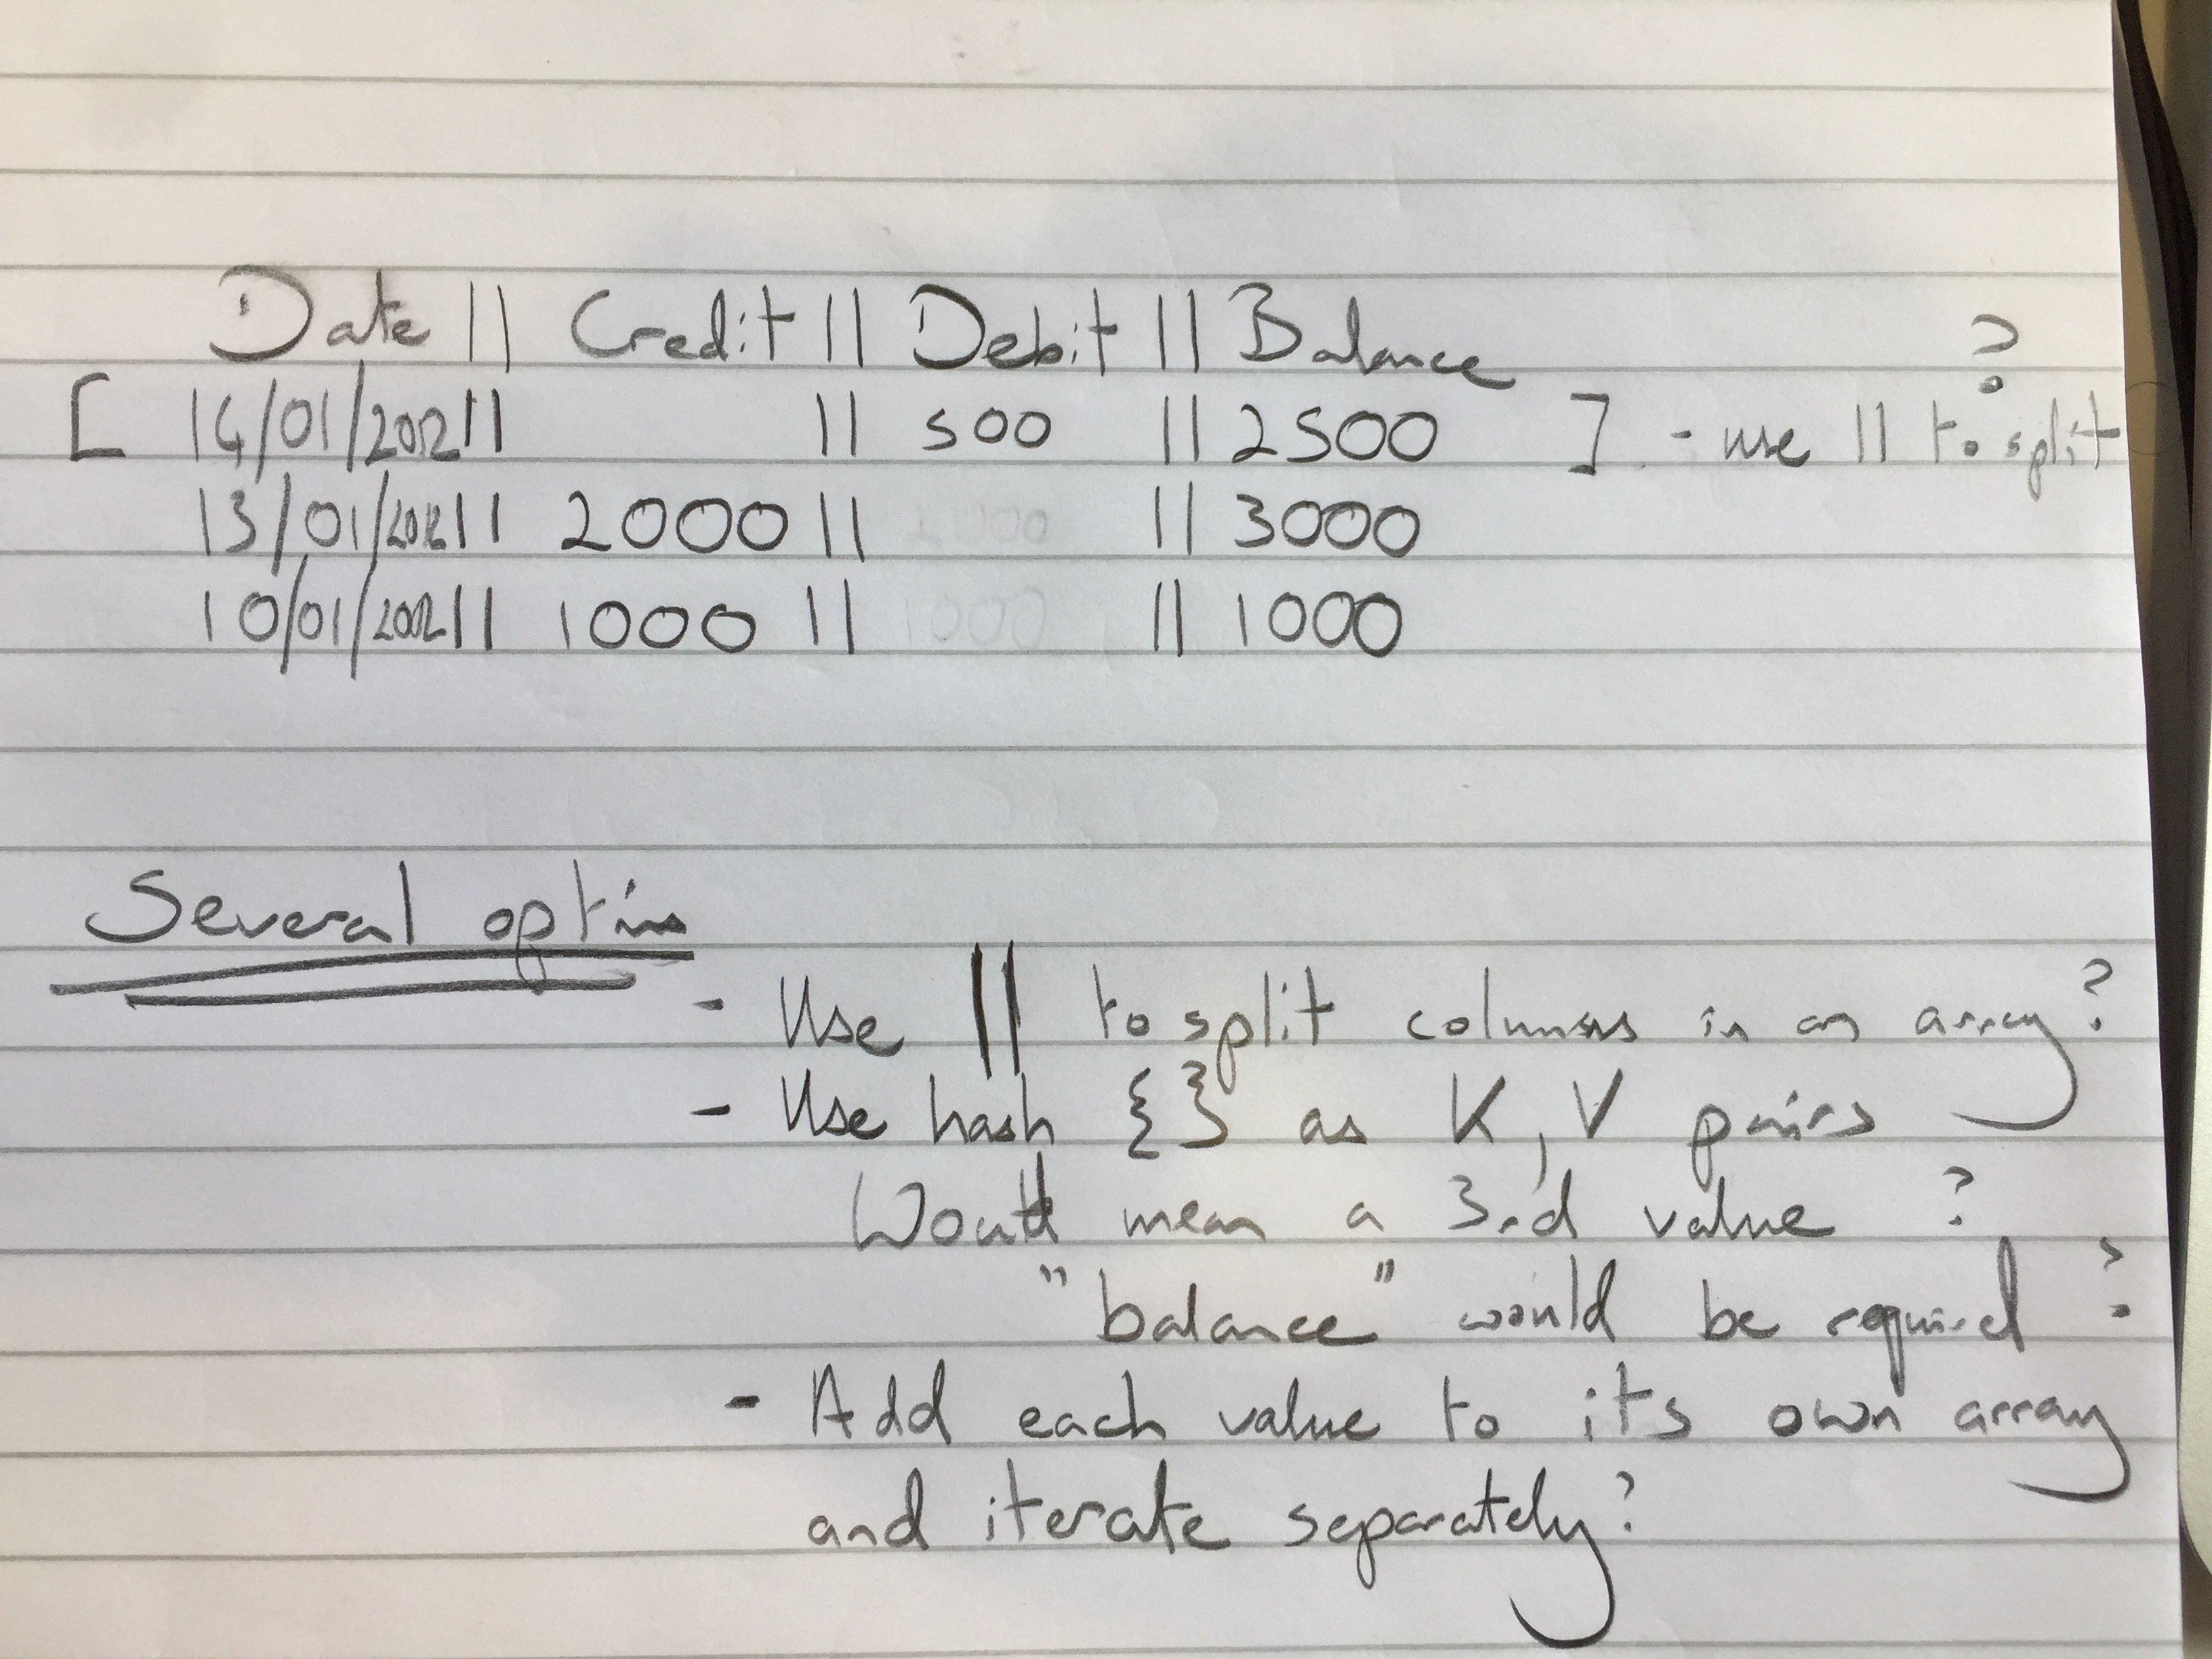 Date || Credit || Debit || Balance
?
[ 14/01/2012 || || 500 || 2500 ] - use || to split
13/01/2012 || 2000 || || 3000
10/01/2012 || 1000 || || 1000
Several options
- Use || to split columns in an array?
- Use hash {} as K, V pairs
Would mean a 3rd value ?
"balance" would be required ?
- Add each value to its own array
and iterate separately?